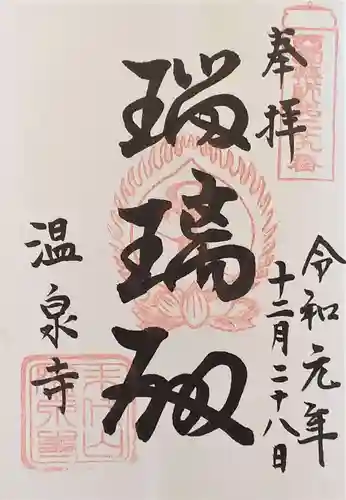 奉拝
令和元年
十二月二十八日
瑠璃殿
温泉寺